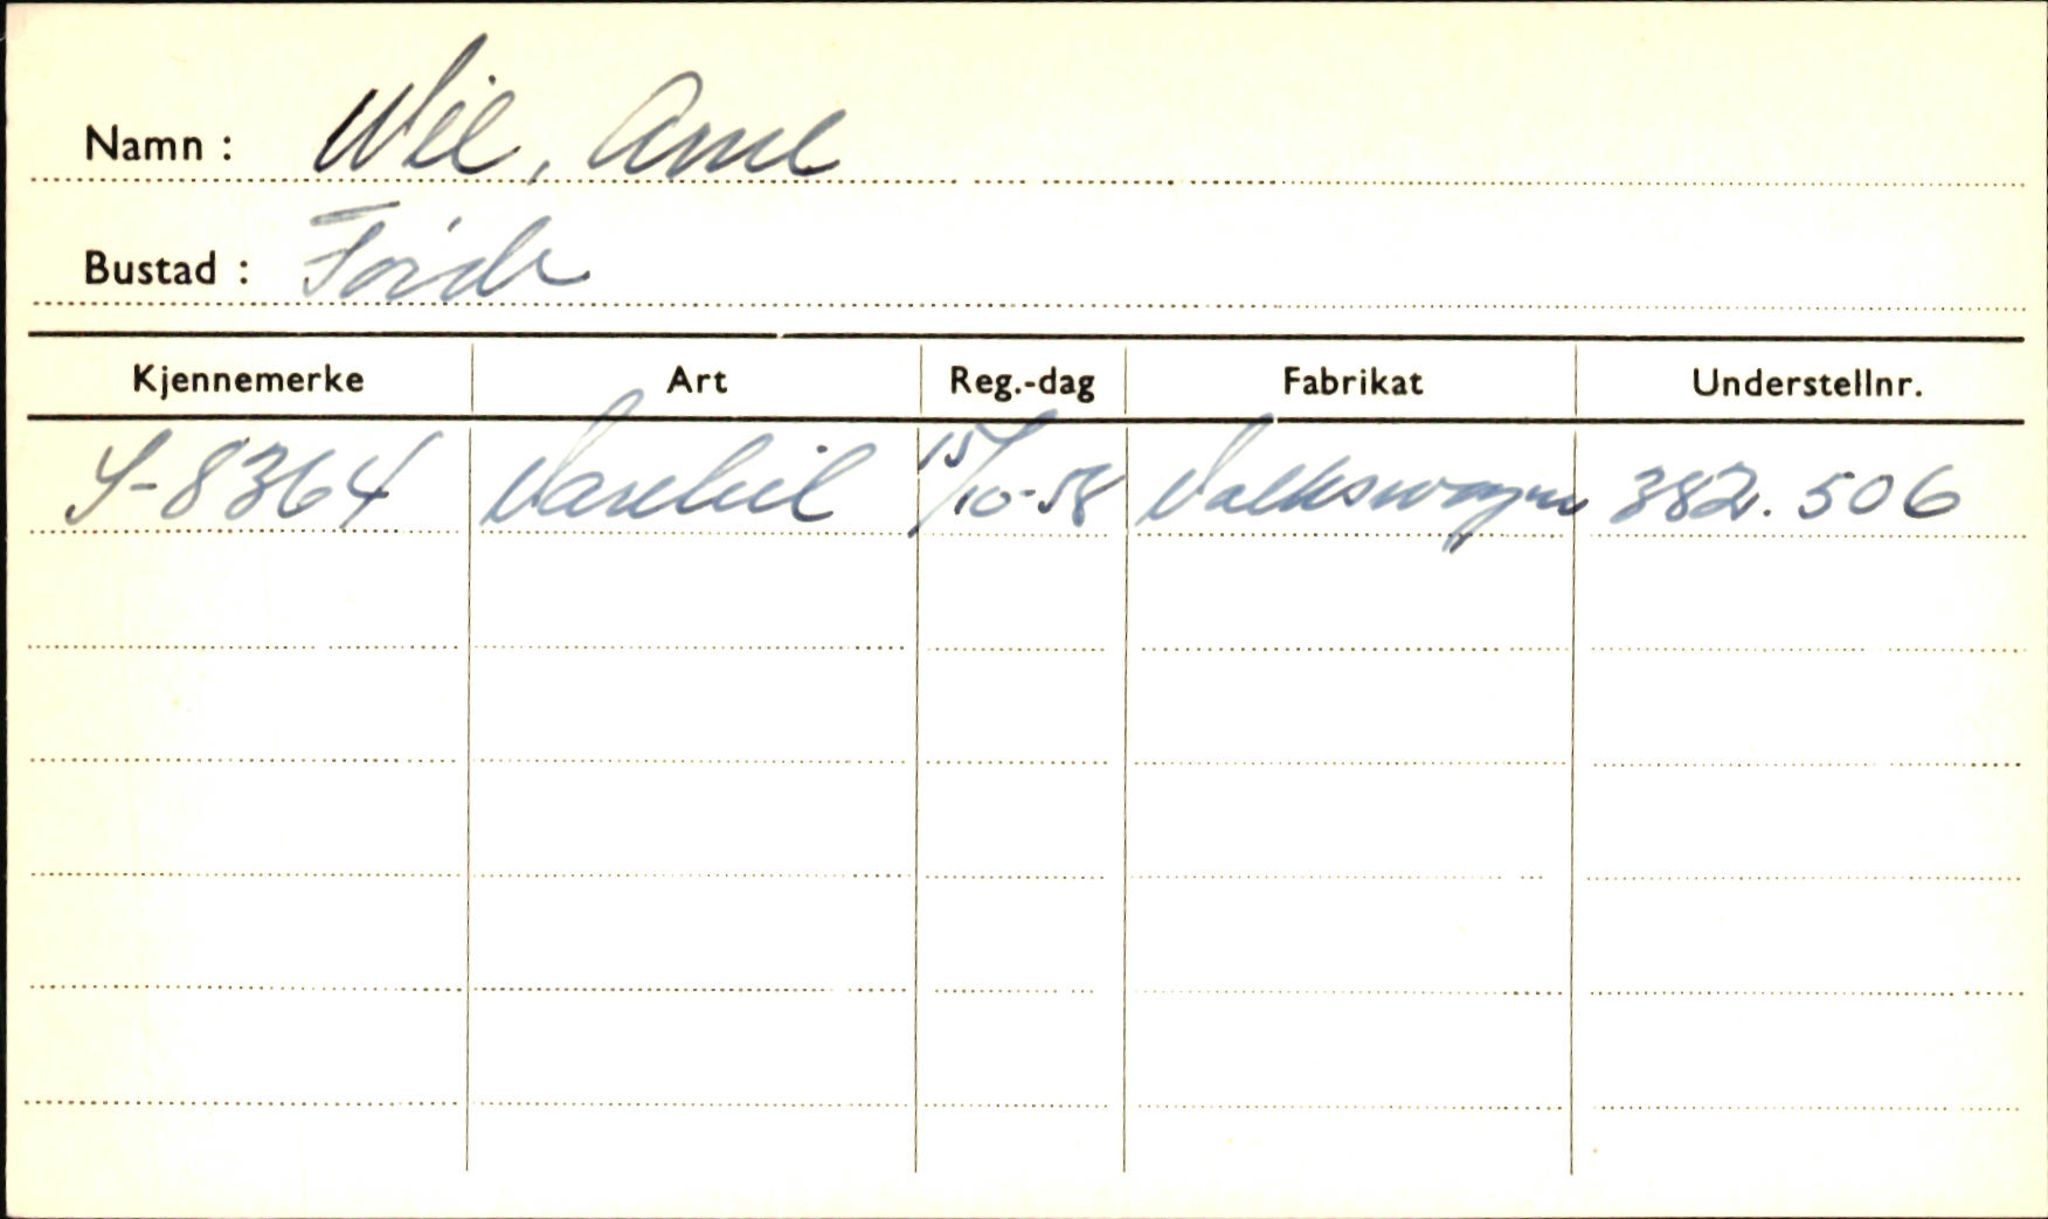 Namn : Wie, Arne
Bustad : Førde
Kjennemerke Art Reg.-dag Fabrikat Understellnr.
S-8364 Varebil 15/10-58 Volkswagen 382.506